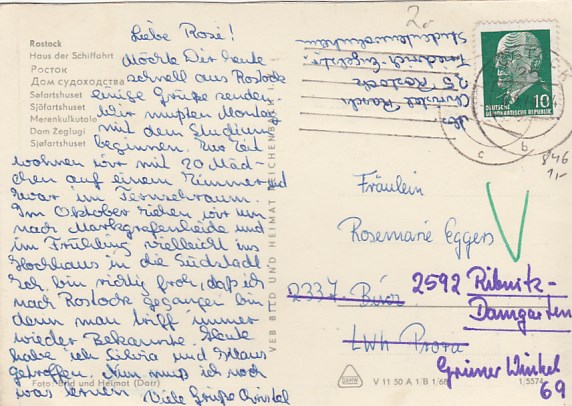 Rostock
Haus der Schiffahrt
Росток
Дом судоходства
Søfartshuset
Sjöfartshuset
Merenkulkutalo
Dom Żeglugi
Sjøfartshuset
Liebe Rosi!
Möchte Dir heute
schnell aus Rostock
einige Grüße senden
Wir mußten Montag
mit dem Studium
beginnen. Zur Zeit
wohnen wir mit 20 Mäd-
chen auf einem Zimmer und
zwar im Fernsehraum.
Im Oktober ziehen wir um
nach Markgrafenheide und
im Frühling vielleicht ins
Hochhaus in die Südstadt
Ich bin richtig froh, daß ich
nach Rostock gegangen bin
denn man trifft immer
wieder Bekannte. Heute
habe ich Silvia und Klaus
getroffen. Nun muß ich noch
was lernen Viele Grüße Christel
Foto: Bild und Heimat (Darr)
VEB BILD UND HEIMAT REICHENBACH I. V.
2.-
Abs.
Christel
25 Rostock
Studentenwohnheim
DEUTSCHE
DEMOKRATISCHE REPUBLIK
10
c
b
846
1,-
Fräulein
Rosemarie Eggers
2337 Binz
2592 Ribnitz-
Damgarten
LWH Prora
Grüner Winkel
69
V 11 50 A 1/B 1/68
1/5574